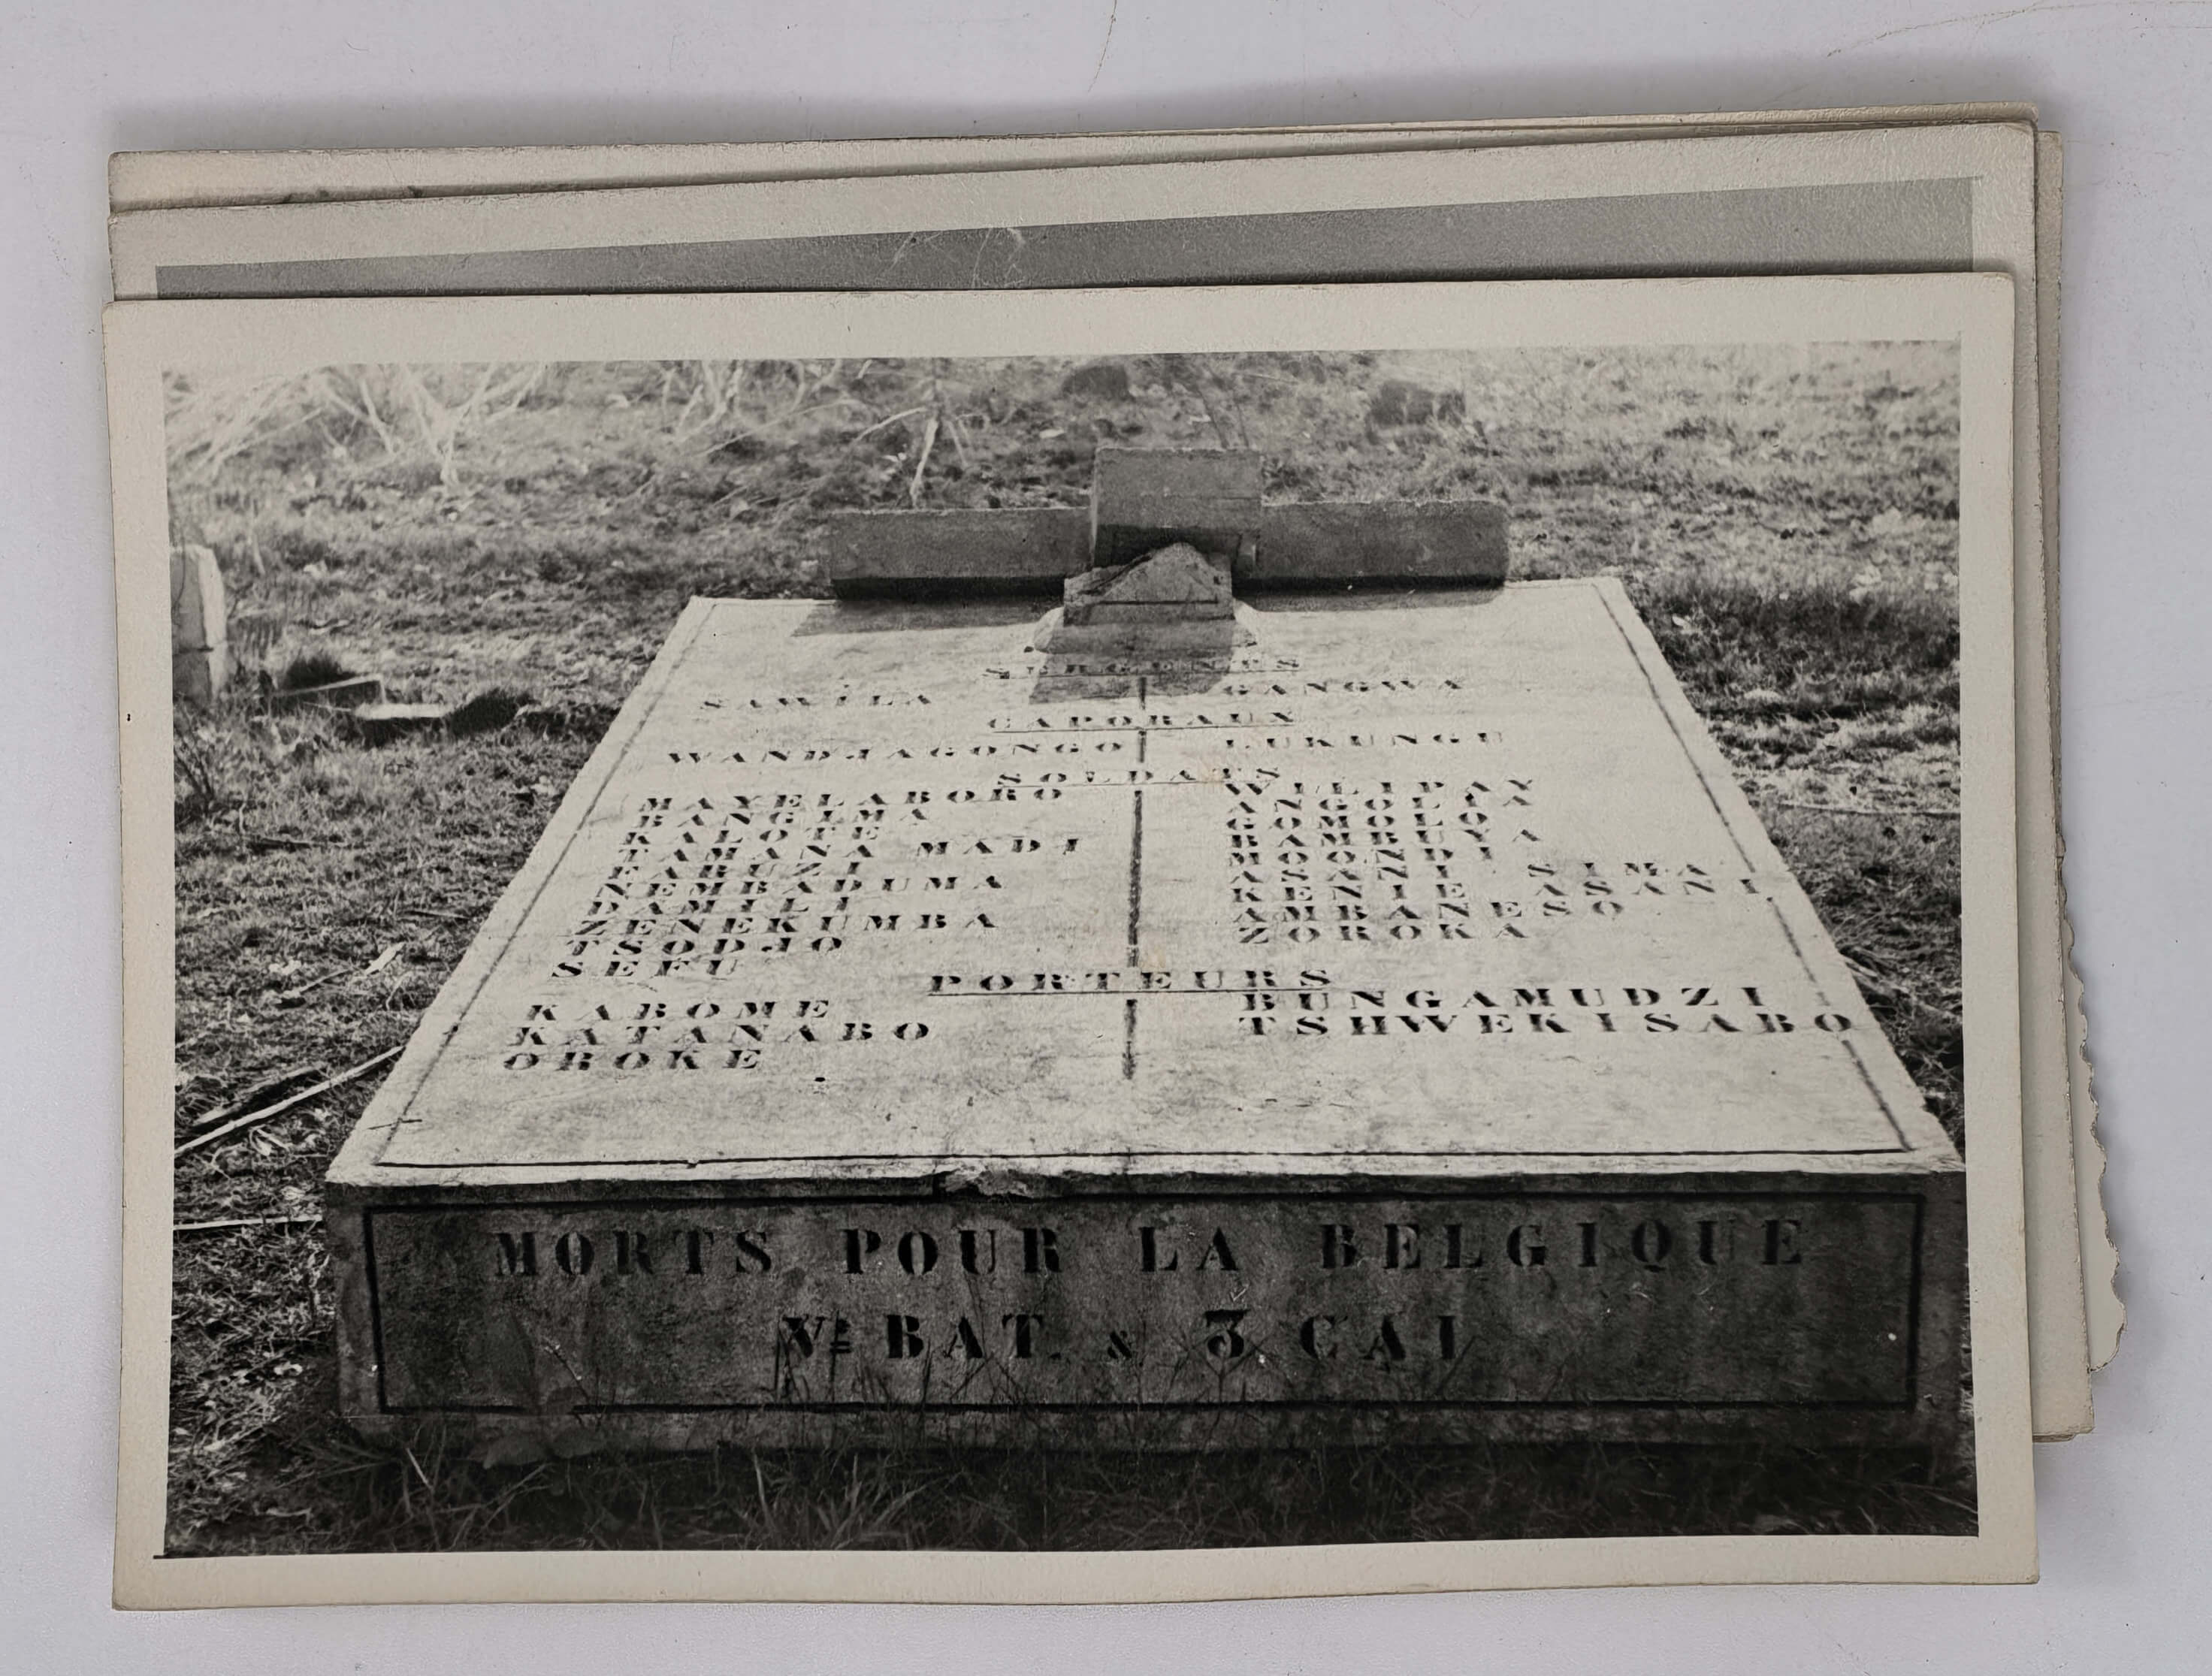 SERGENTS
SAWILA GANGWA
CAPORAUX
WANDJAGONGO LUKUNGU
SOLDATS
MAYELABORO WILIPAY
BANGIMA ANGOLIA
KALOTE GOMOLO
TAMANA MADI BAMBUYA
FARUZI
NEMBADUMA ASANZI SIMA
DAMILI KENIE ASANI
ZENEKUMBA AMBANESO
TSODJO ZOROKA
SEFU
PORTEURS
KABOME BUNGAMUDZI
KATANABO TSHWEKISABO
OROKE
MORTS POUR LA BELGIQUE
BAT. & 3 CAI